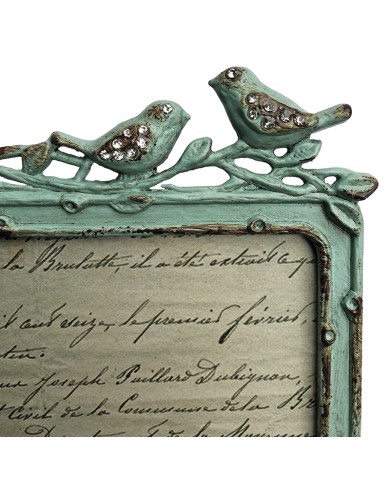 la Brulatte, il a été extrait
il aout seize, le premier février,
Joseph Paillard Dubignon,
Civil de la Commune de la
de la Mayenne